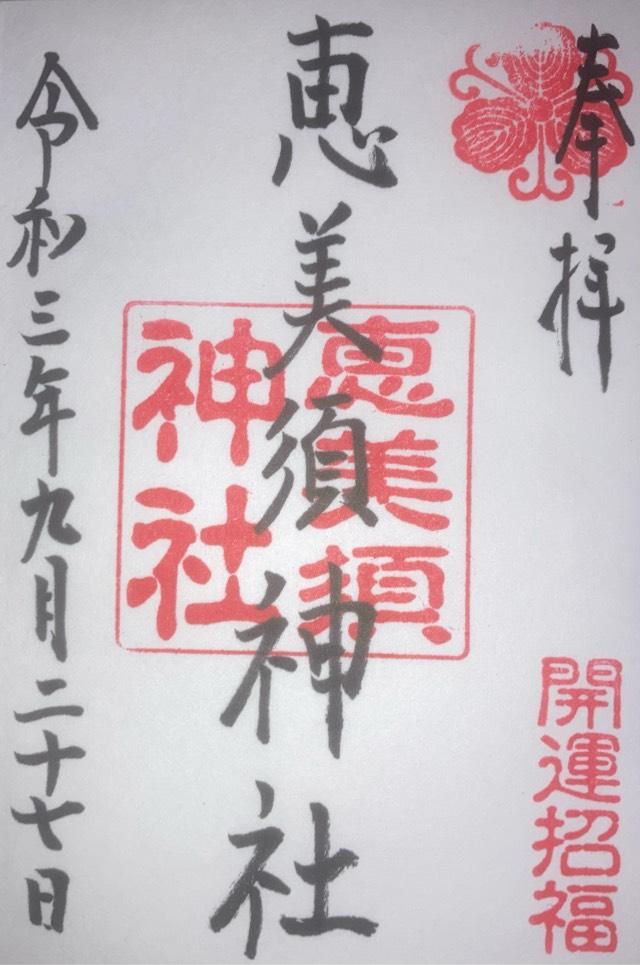 奉拝
開運招福
恵美須神社
恵美須
神社
令和三年九月二十七日